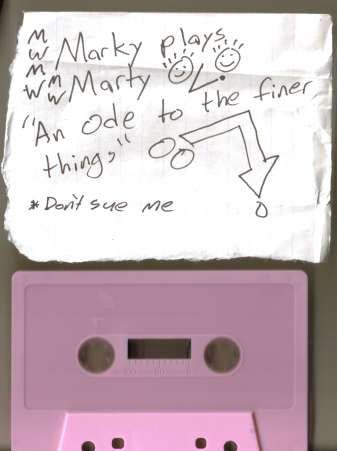 M
W Marky plays
M
W M
W Marty
"An Ode to the finer
things"
*Don't sue me